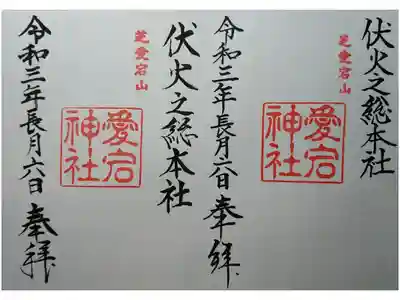 伏火之総本社
芝愛宕山
愛宕神社
令和三年長月六日奉拝
伏火之総本社
芝愛宕山
愛宕神社
令和三年長月六日奉拝